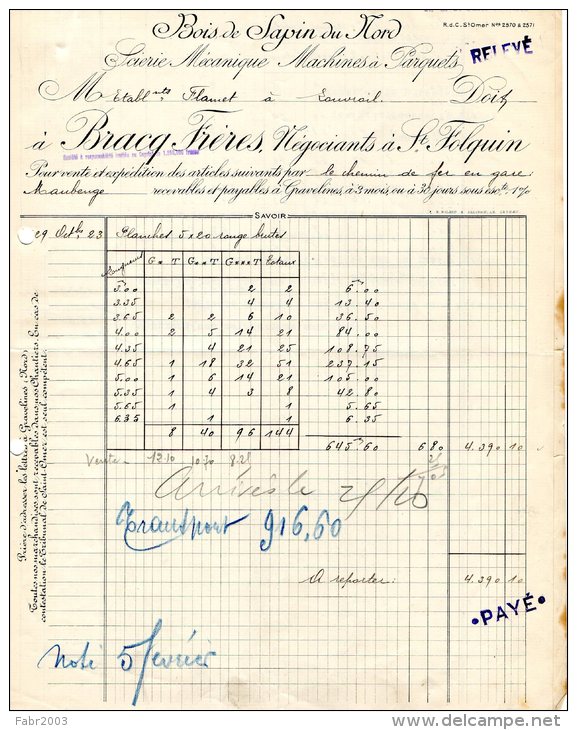 Bois de Sapin du Nord
R.d.C. St Omer Nos 2570 & 2571
Scierie Mécanique Machines à Parquets
RELEVÉ
M Etablnts Flamet à Louvroil. Doit
à Bracq Frères, Négociants à St Folquin
Pour vente et expédition des articles suivants par le chemin de fer en gare
Maubenge recevables et payables à Gravelines, à 3 mois, ou à 30 jours sous escte 1%
SAVOIR
29 Octbre 23 Planches 5 x 20 rouge brutes
Longueurs G* T G**T G***T Totaux
3.00 2 2 6.00
3.35 4 4 13.40
3.65 2 2 6 10 36.50
4.00 2 5 14 21 84.00
4.35 4 21 25 108.75
4.65 1 18 32 51 237.15
5.00 1 6 14 21 105.00
5.35 1 4 3 8 42.80
5.65 1 1 5.65
6.35 1 1 6.35
8 40 96 144 645.60 680 4.390 10
Vente 1210 1070 825
Arrivés le 29/10
Transport 916,60
A reporter: 4.390 10
PAYÉ
Noté 5 février
Prière d'adresser les lettres à Gravelines (Nord)
Toutes nos marchandises sont recevables dans nos Chantiers. En cas de
contestation le Tribunal de Saint-Omer est seul compétent.
Fabr2003
delcampe.net